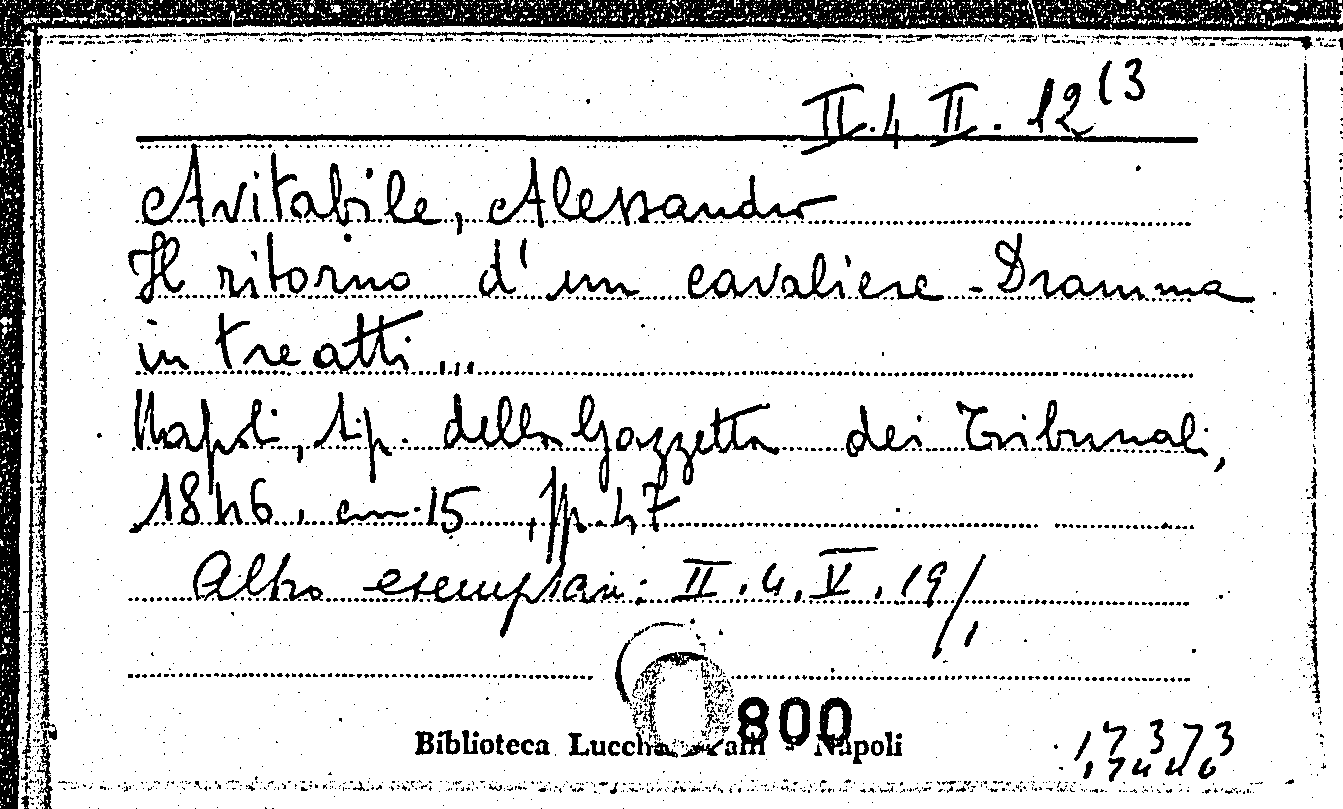 II.4.II.12(3
Avitabile, Alessandro
Il ritorno d'un cavaliere - Dramma
in tre atti...
Napoli, tip. della Gazzetta dei Tribunali,
1846, cm. 15, pp. 47
Altro esemplare: II.4.V.19/1
800
Biblioteca Napoli
17373